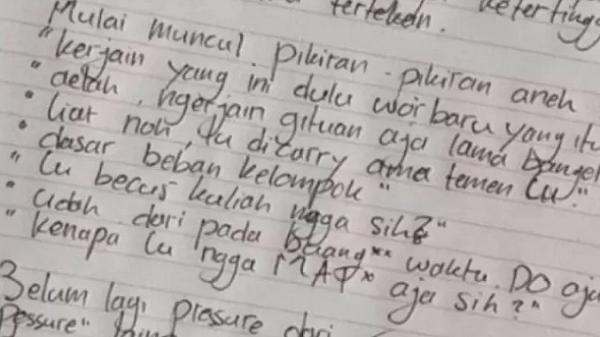 terteken. ketertingg
Mulai muncul. pikiran-pikiran aneh
"kerjain yang ini dulu woi baru yang itu
"aelah, ngerjain gituan aja lama banget
• liat noh, lu dicarry ama temen lu."
• dasar beban kelompok"
"lu becus kuliah ngga sih?"
• udah dari pada buang** waktu. DO aja
"kenapa lu ngga MAP* aja sih?"
Belum lagi pressure dari
pressure"